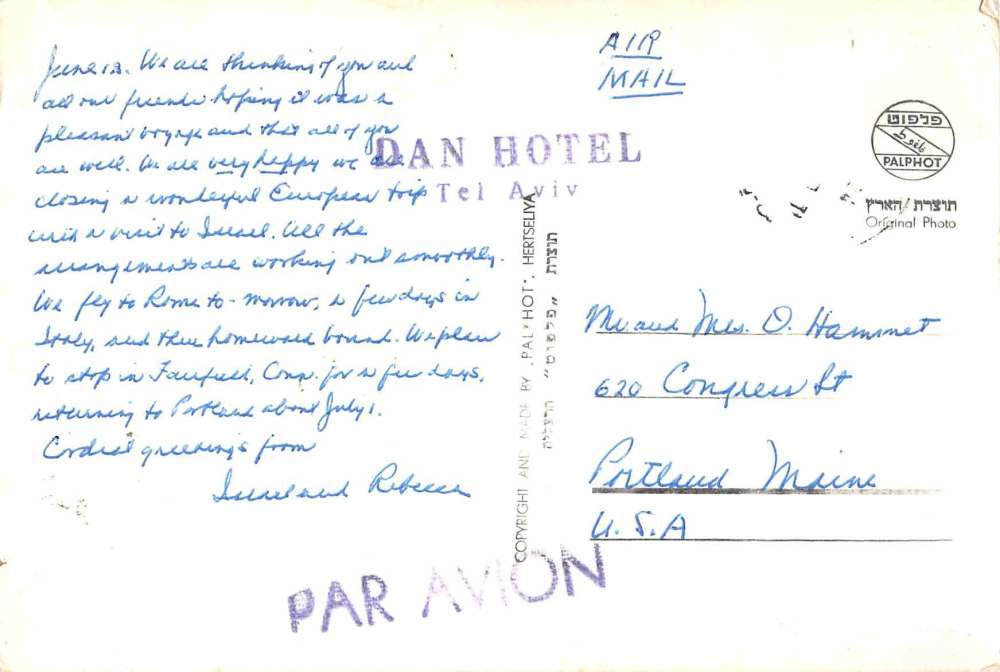 June 13. We are thinking of you and
all our friends hoping it was a
pleasant voyage and that all of you
are well. We are very happy we are
closing a wonderful European trip
with a visit to Israel. All the
arrangements are working out smoothly.
We fly to Rome to-morrow, a few days in
Italy, and then homeward bound. We plan
to stop in Fairfield, Conn. for a few days,
returning to Portland about July 1.
Cordial greetings from
Israel and Rebecca
AIR
MAIL
DAN HOTEL
Tel Aviv
פלפוט
PALPHOT
תוצרת הארץ
Original Photo
COPYRIGHT AND MADE BY „PALPHOT", HERTSELIYA
תוצרת „פלפוט" הרצליה
Mr and Mrs. O. Hammet
620 Congress St
Portland Maine
U.S.A
PAR AVION